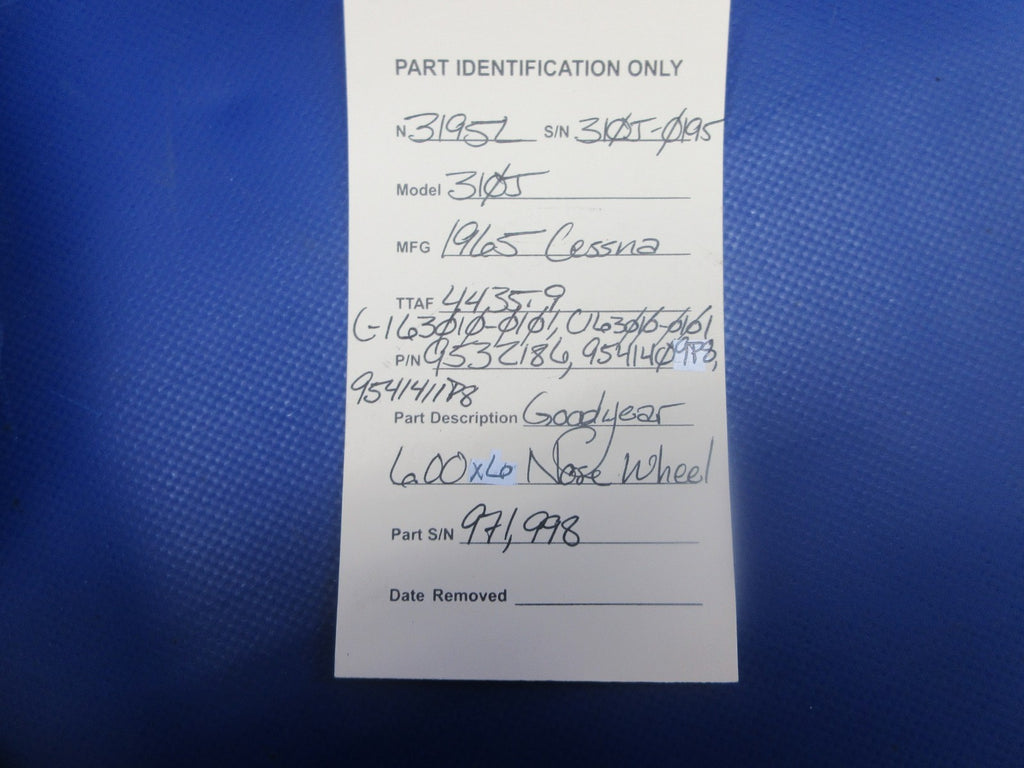 PART IDENTIFICATION ONLY
N 3195L S/N 310J-0195
Model 310J
MFG 1965 Cessna
TTAF 4435.9
C-163010-0101, C163010-0101
P/N 9532186, 9541409P8,
9541411P8
Part Description Goodyear
600x6 Nose Wheel
Part S/N 971,998
Date Removed